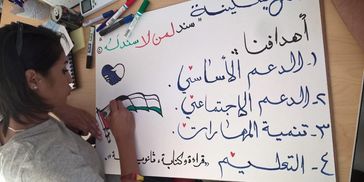 سند لمن لا سند له
أهدافنا:
١- الدعم الأساسي
٢- الدعم الاجتماعي
٣- تنمية المهارات
٤- التعليم
"قراءة وكتابة، قانون